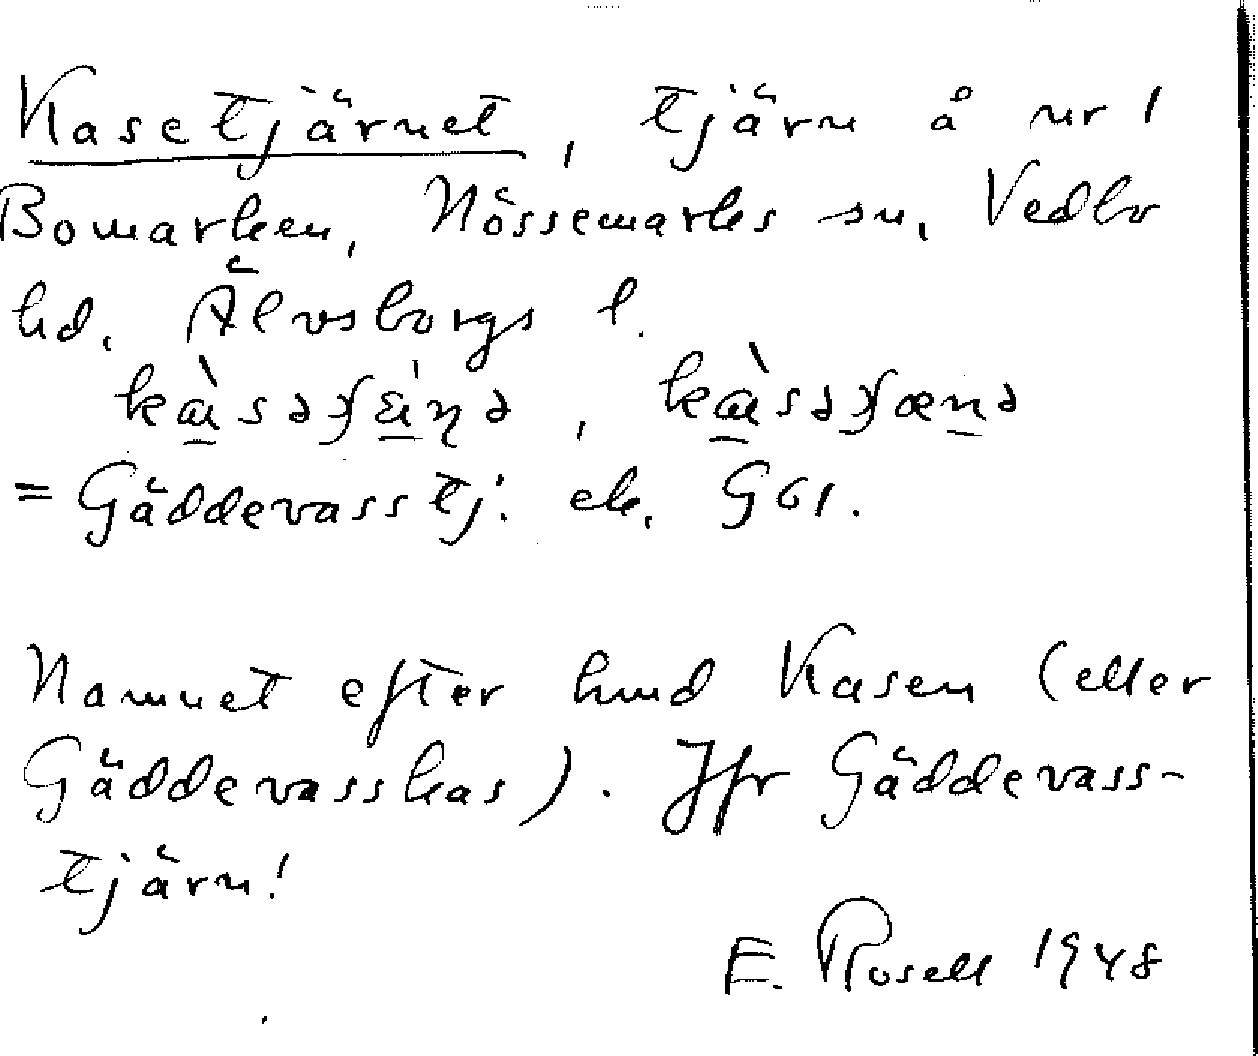 Kasetjärnet, tjärn å nr 1
Bomarken, Nössemarks sn, Vedbo
hd. Älvsborgs l.
= Gäddevasstj. ek. G61.
Namnet efter hmd Kasen (eller
Gäddevasskas). Jfr Gäddevass-
tjärn!
E. Rosell 1948